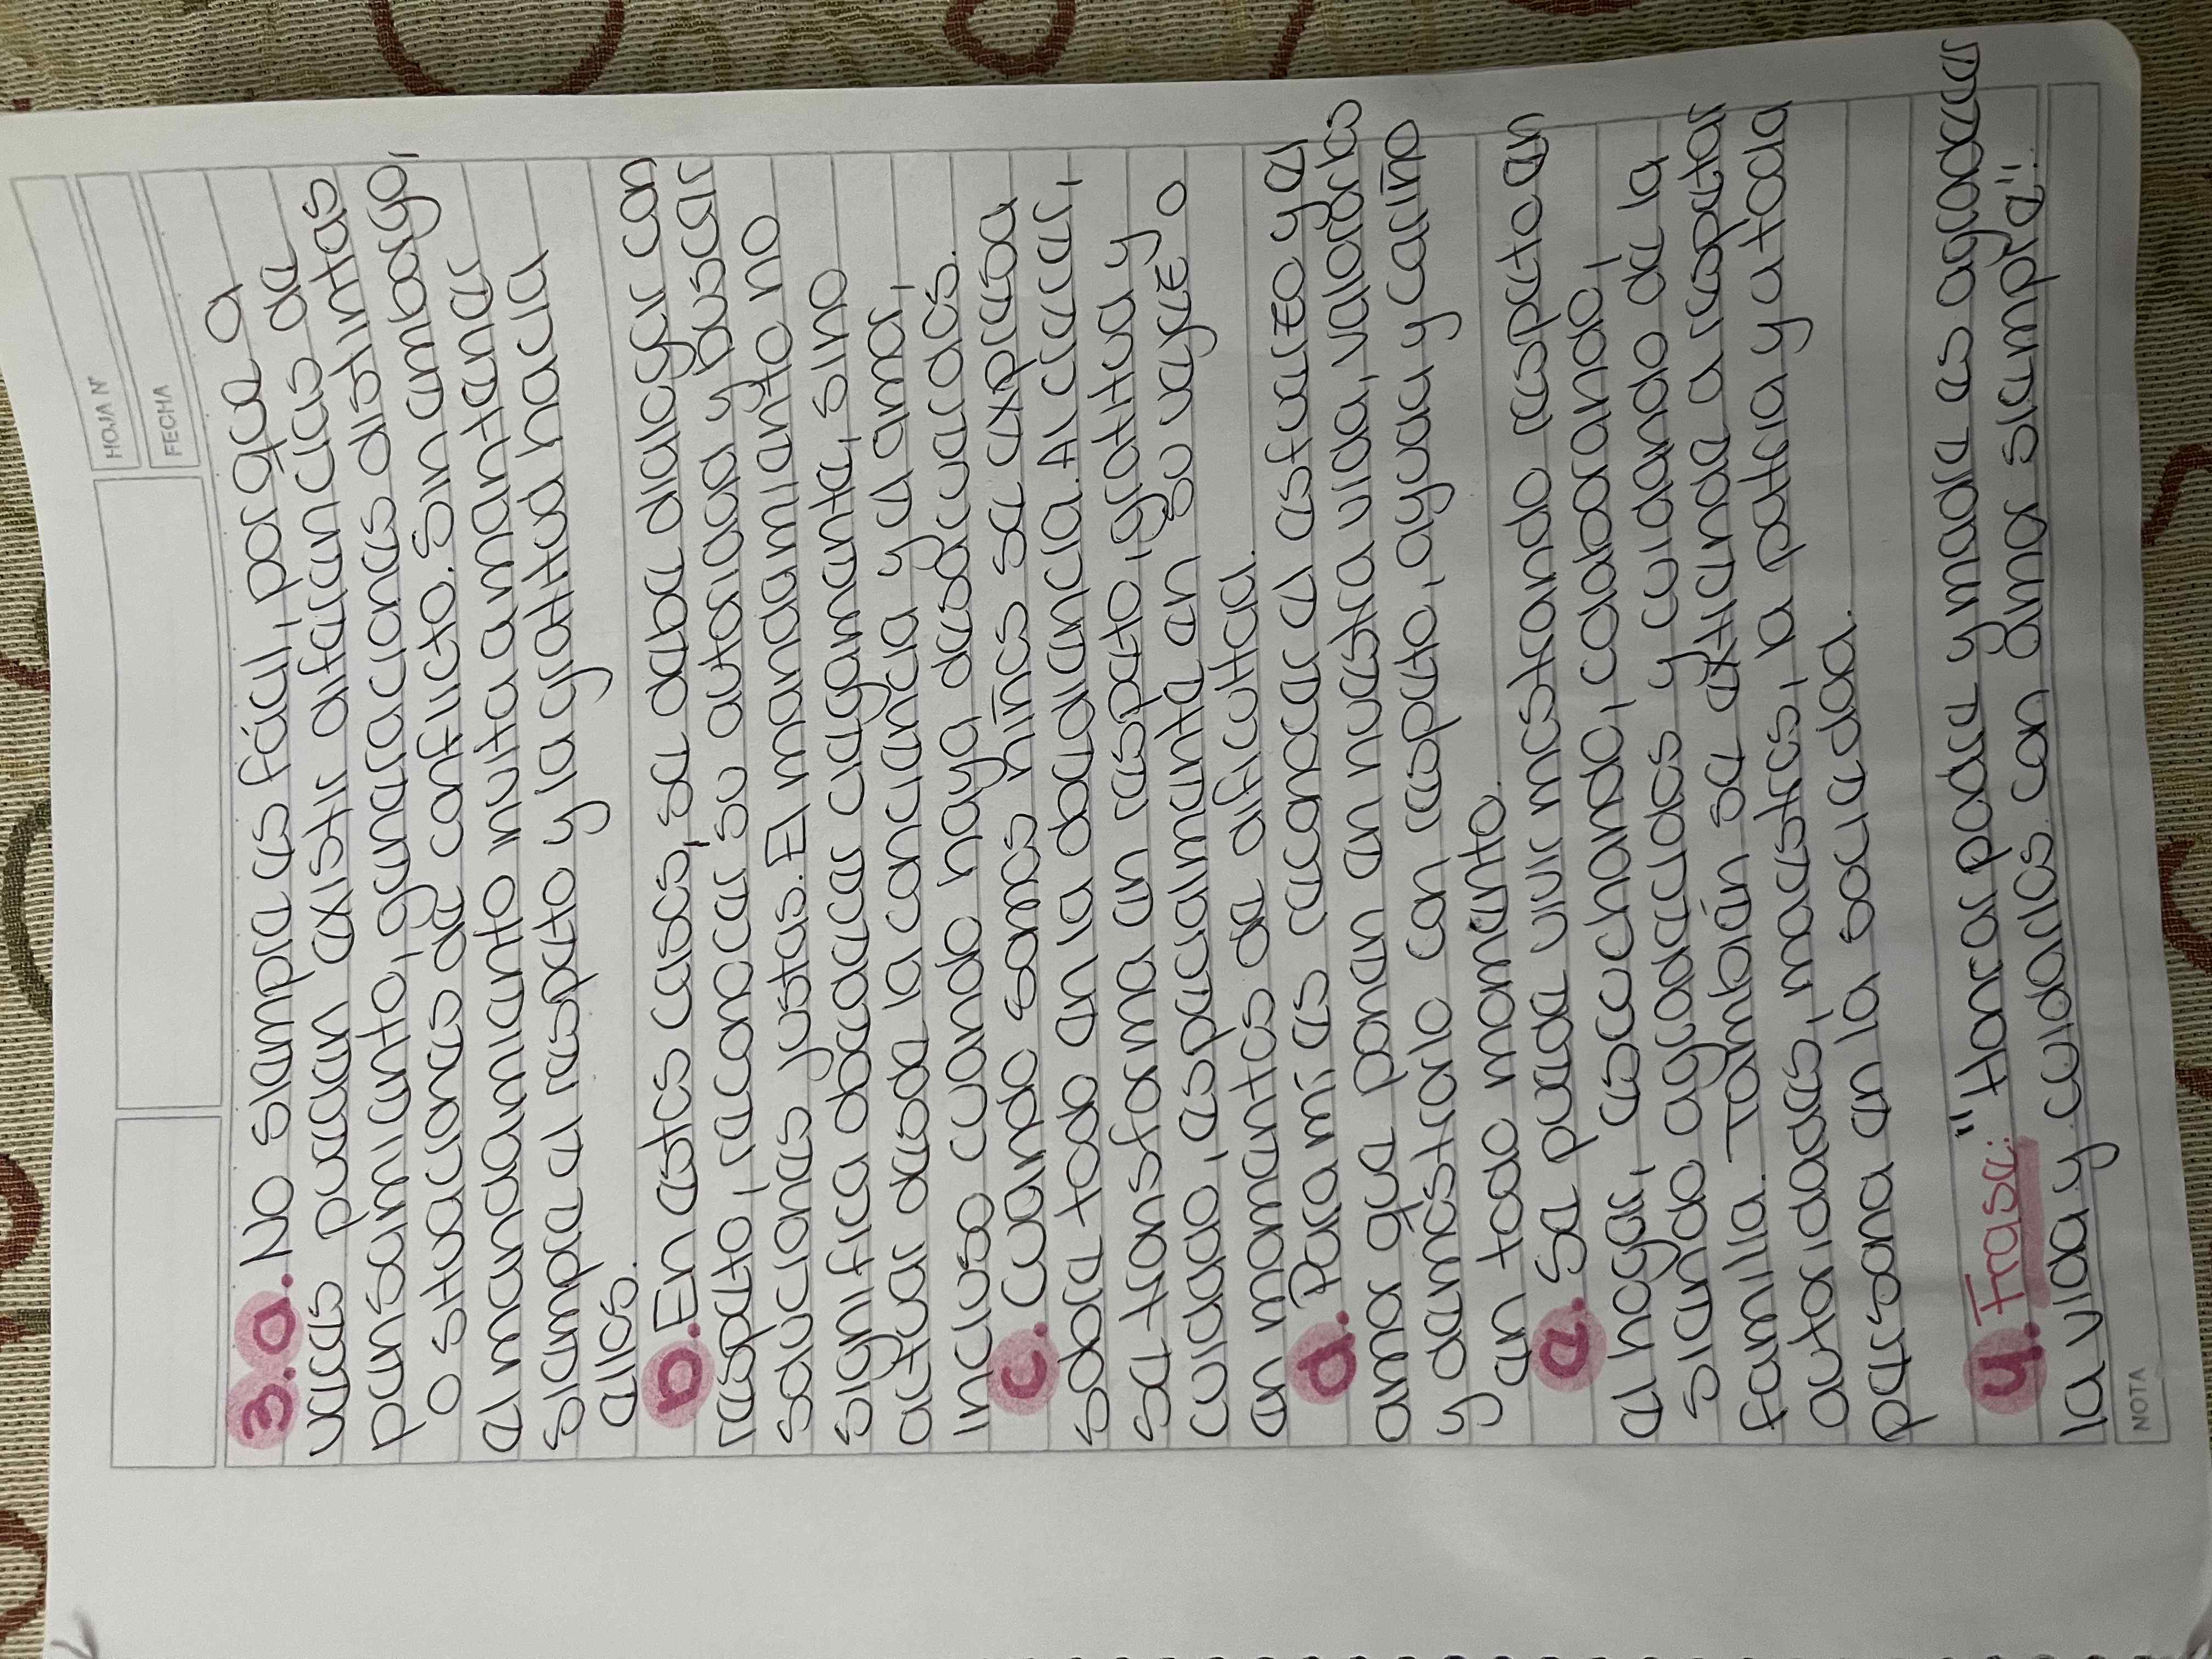 HOJA Nº
FECHA
3.a. No siempre es fácil, porque a
veces pueden existir diferencias de
pensamiento, generaciones distintas
o situaciones de conflicto. Sin embargo,
el mandamiento invita a mantener
siempre el respeto y la gratitud hacia
ellos.
b. En estos casos, se debe dialogar con
respeto, reconocer su autoridad y buscar
soluciones justas. El mandamiento no
significa obedecer ciegamente, sino
actuar desde la conciencia y el amor,
incluso cuando haya desacuerdos.
c. Cuando somos niños se expresa
sobre todo en la obediencia. Al crecer,
se transforma en respeto, gratitud y
cuidado, especialmente en su vejez o
en momentos de dificultad.
d. Para mí es reconocer el esfuerzo y el
amor que ponen en nuestra vida, valorarlos
y demostrarlo con respeto, ayuda y cariño
en todo momento.
e. Se puede vivir mostrando respeto en
el hogar, escuchando, colaborando,
siendo agradecidos y cuidando de la
familia. También se extiende a respetar
autoridades, maestros, la patria y a toda
persona en la sociedad.
4. Frase: "Honrar padre y madre es agradecer
la vida y cuidarlos con amor siempre".
NOTA